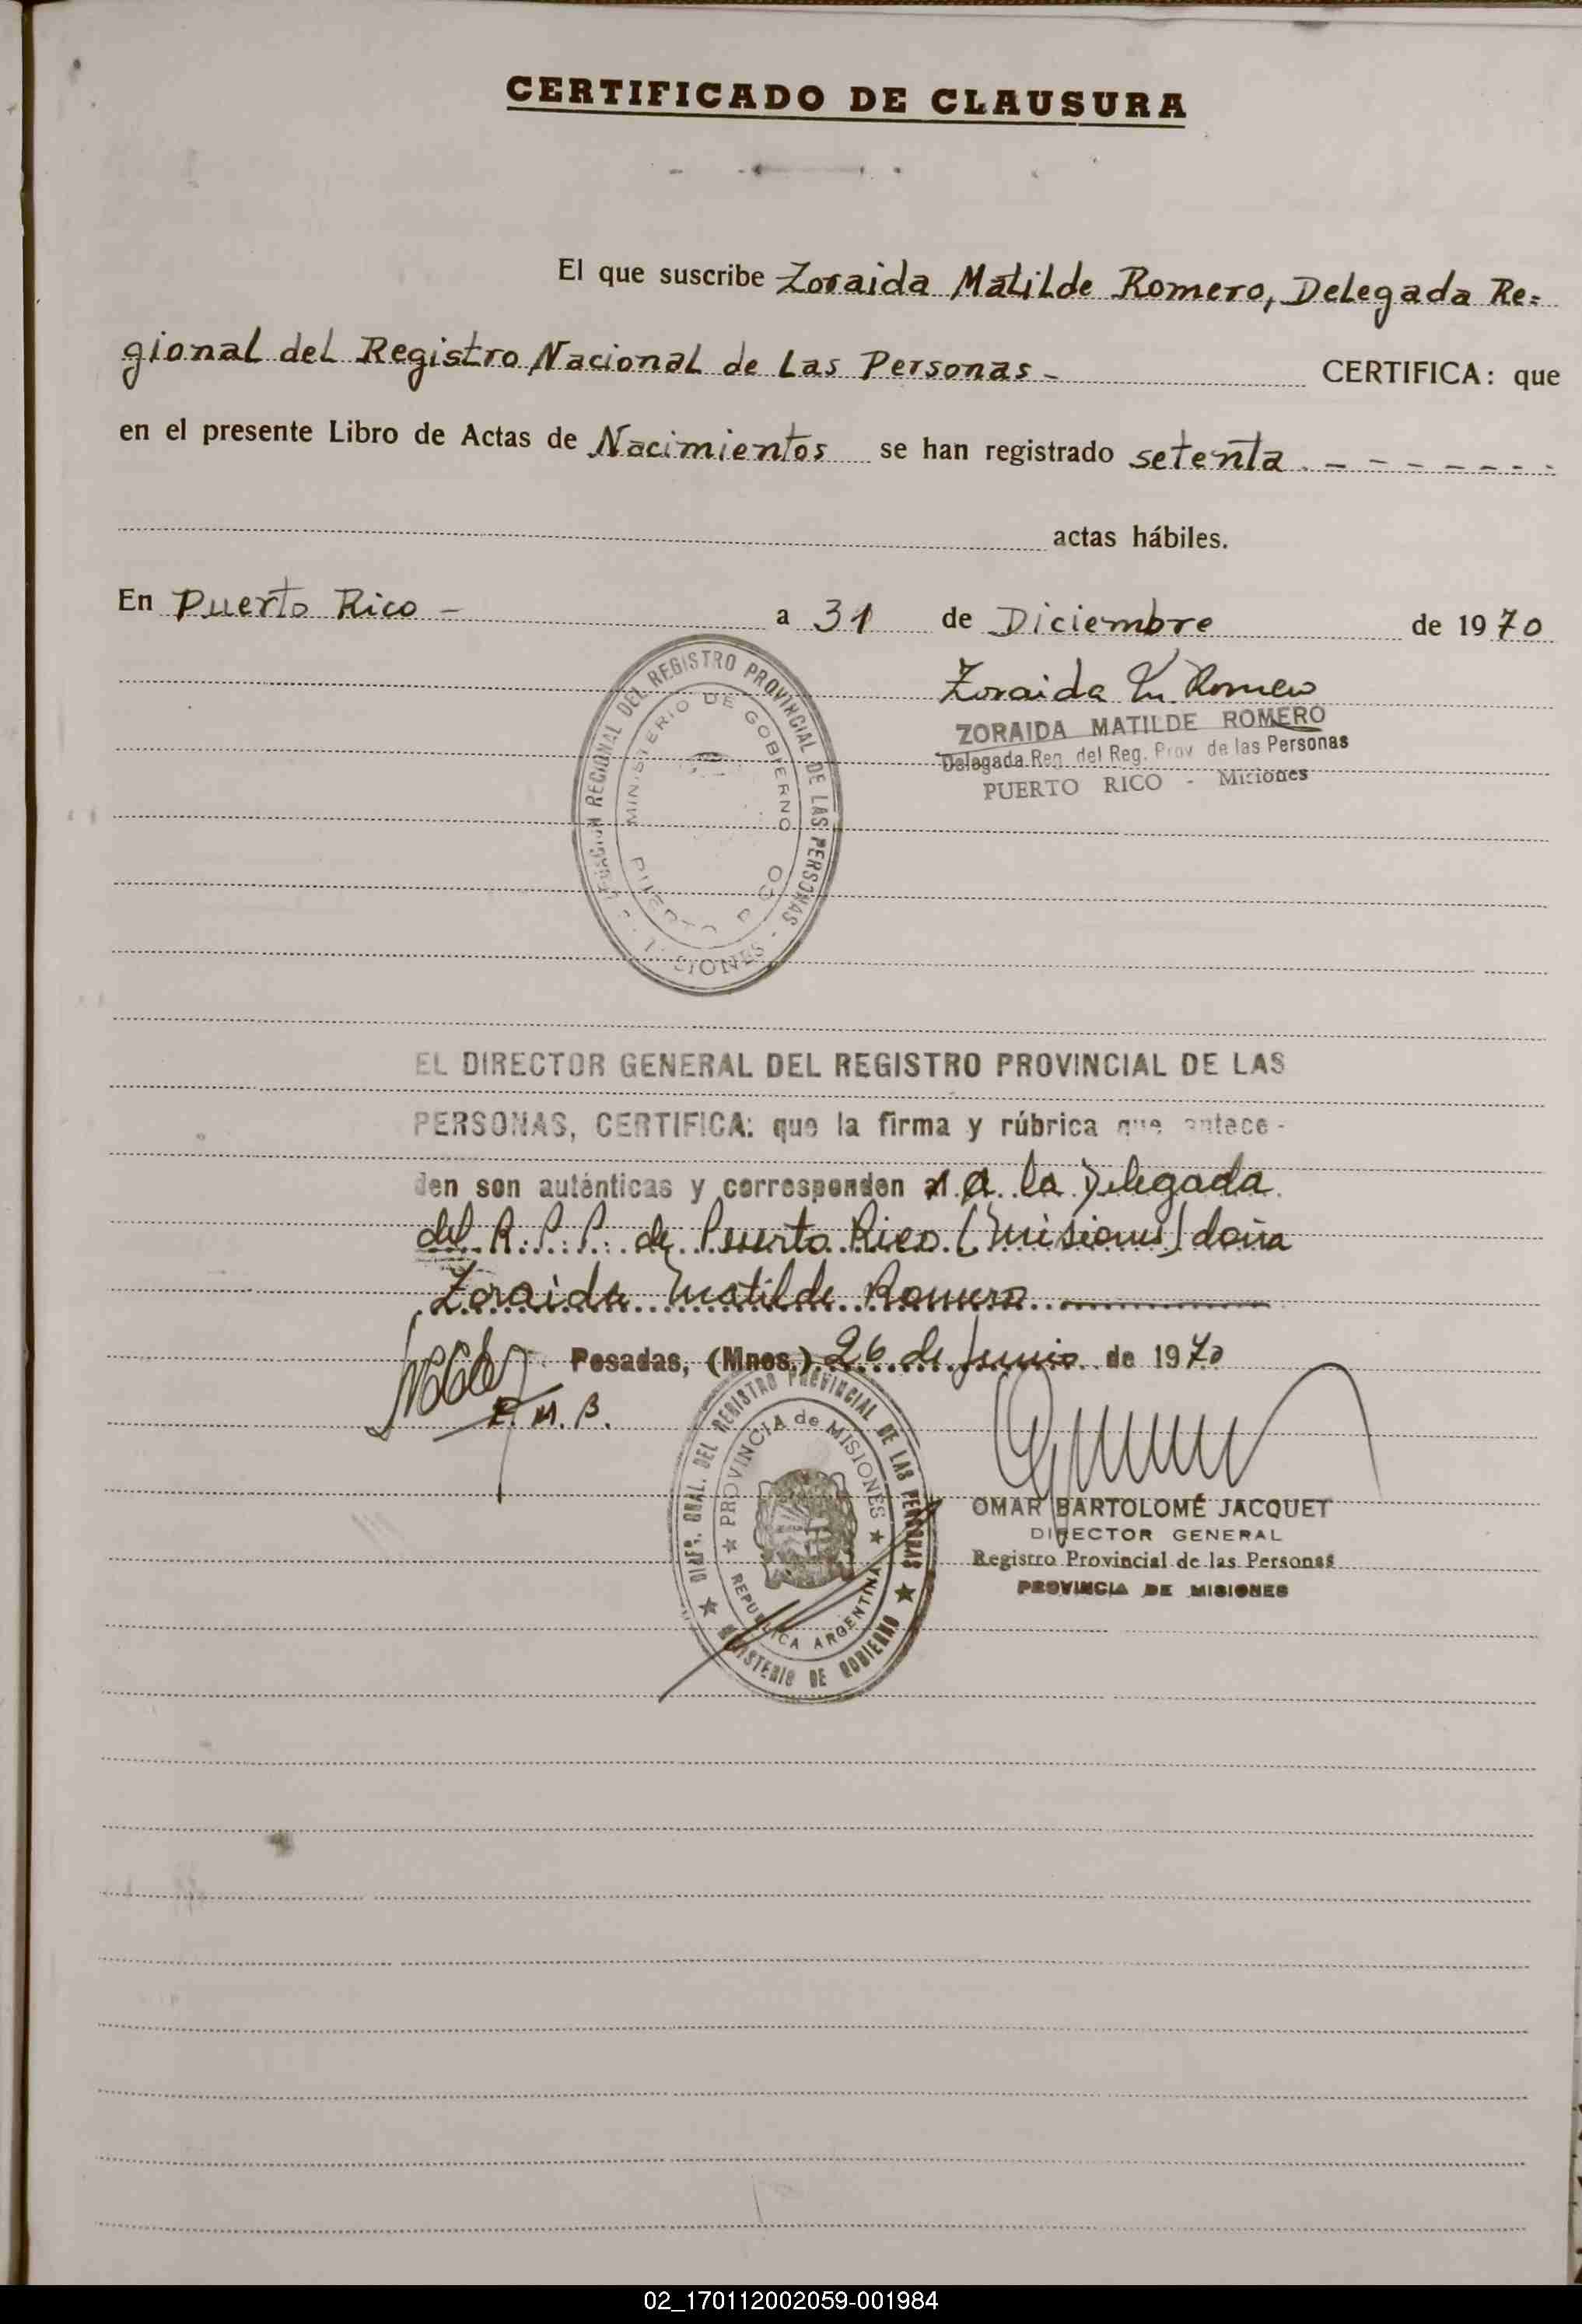 CERTIFICADO DE CLAUSURA
El que suscribe Zoraida Matilde Romero, Delegada Re=
gional del Registro Nacional de Las Personas - CERTIFICA: que
en el presente Libro de Actas de Nacimientos se han registrado setenta - - - - - - -
actas hábiles.
En Puerto Rico - a 31 de Diciembre de 1970
Zoraida M. Romero
ZORAIDA MATILDE ROMERO
Delegada Reg. del Reg. Prov. de las Personas
PUERTO RICO - Misiones
REGIONAL DEL REGISTRO PROVINCIAL DE LAS PERSONAS
MINISTERIO DE GOBIERNO
EL DIRECTOR GENERAL DEL REGISTRO PROVINCIAL DE LAS
PERSONAS, CERTIFICA: que la firma y rúbrica que antece-
den son auténticas y corresponden al a la Delegada
del R. P. P. de Puerto Rico (Misiones) doña
Zoraida Matilde Romero
Posadas, (Mnes.) 26 de Junio de 1970
E. M. B.
DIREC. GRAL. DEL REGISTRO PROVINCIAL DE LAS PERSONAS
MINISTERIO DE GOBIERNO
PROVINCIA de MISIONES
REPUBLICA ARGENTINA
OMAR BARTOLOMÉ JACQUET
DIRECTOR GENERAL
Registro Provincial de las Personas
PROVINCIA DE MISIONES
02_170112002059-001984